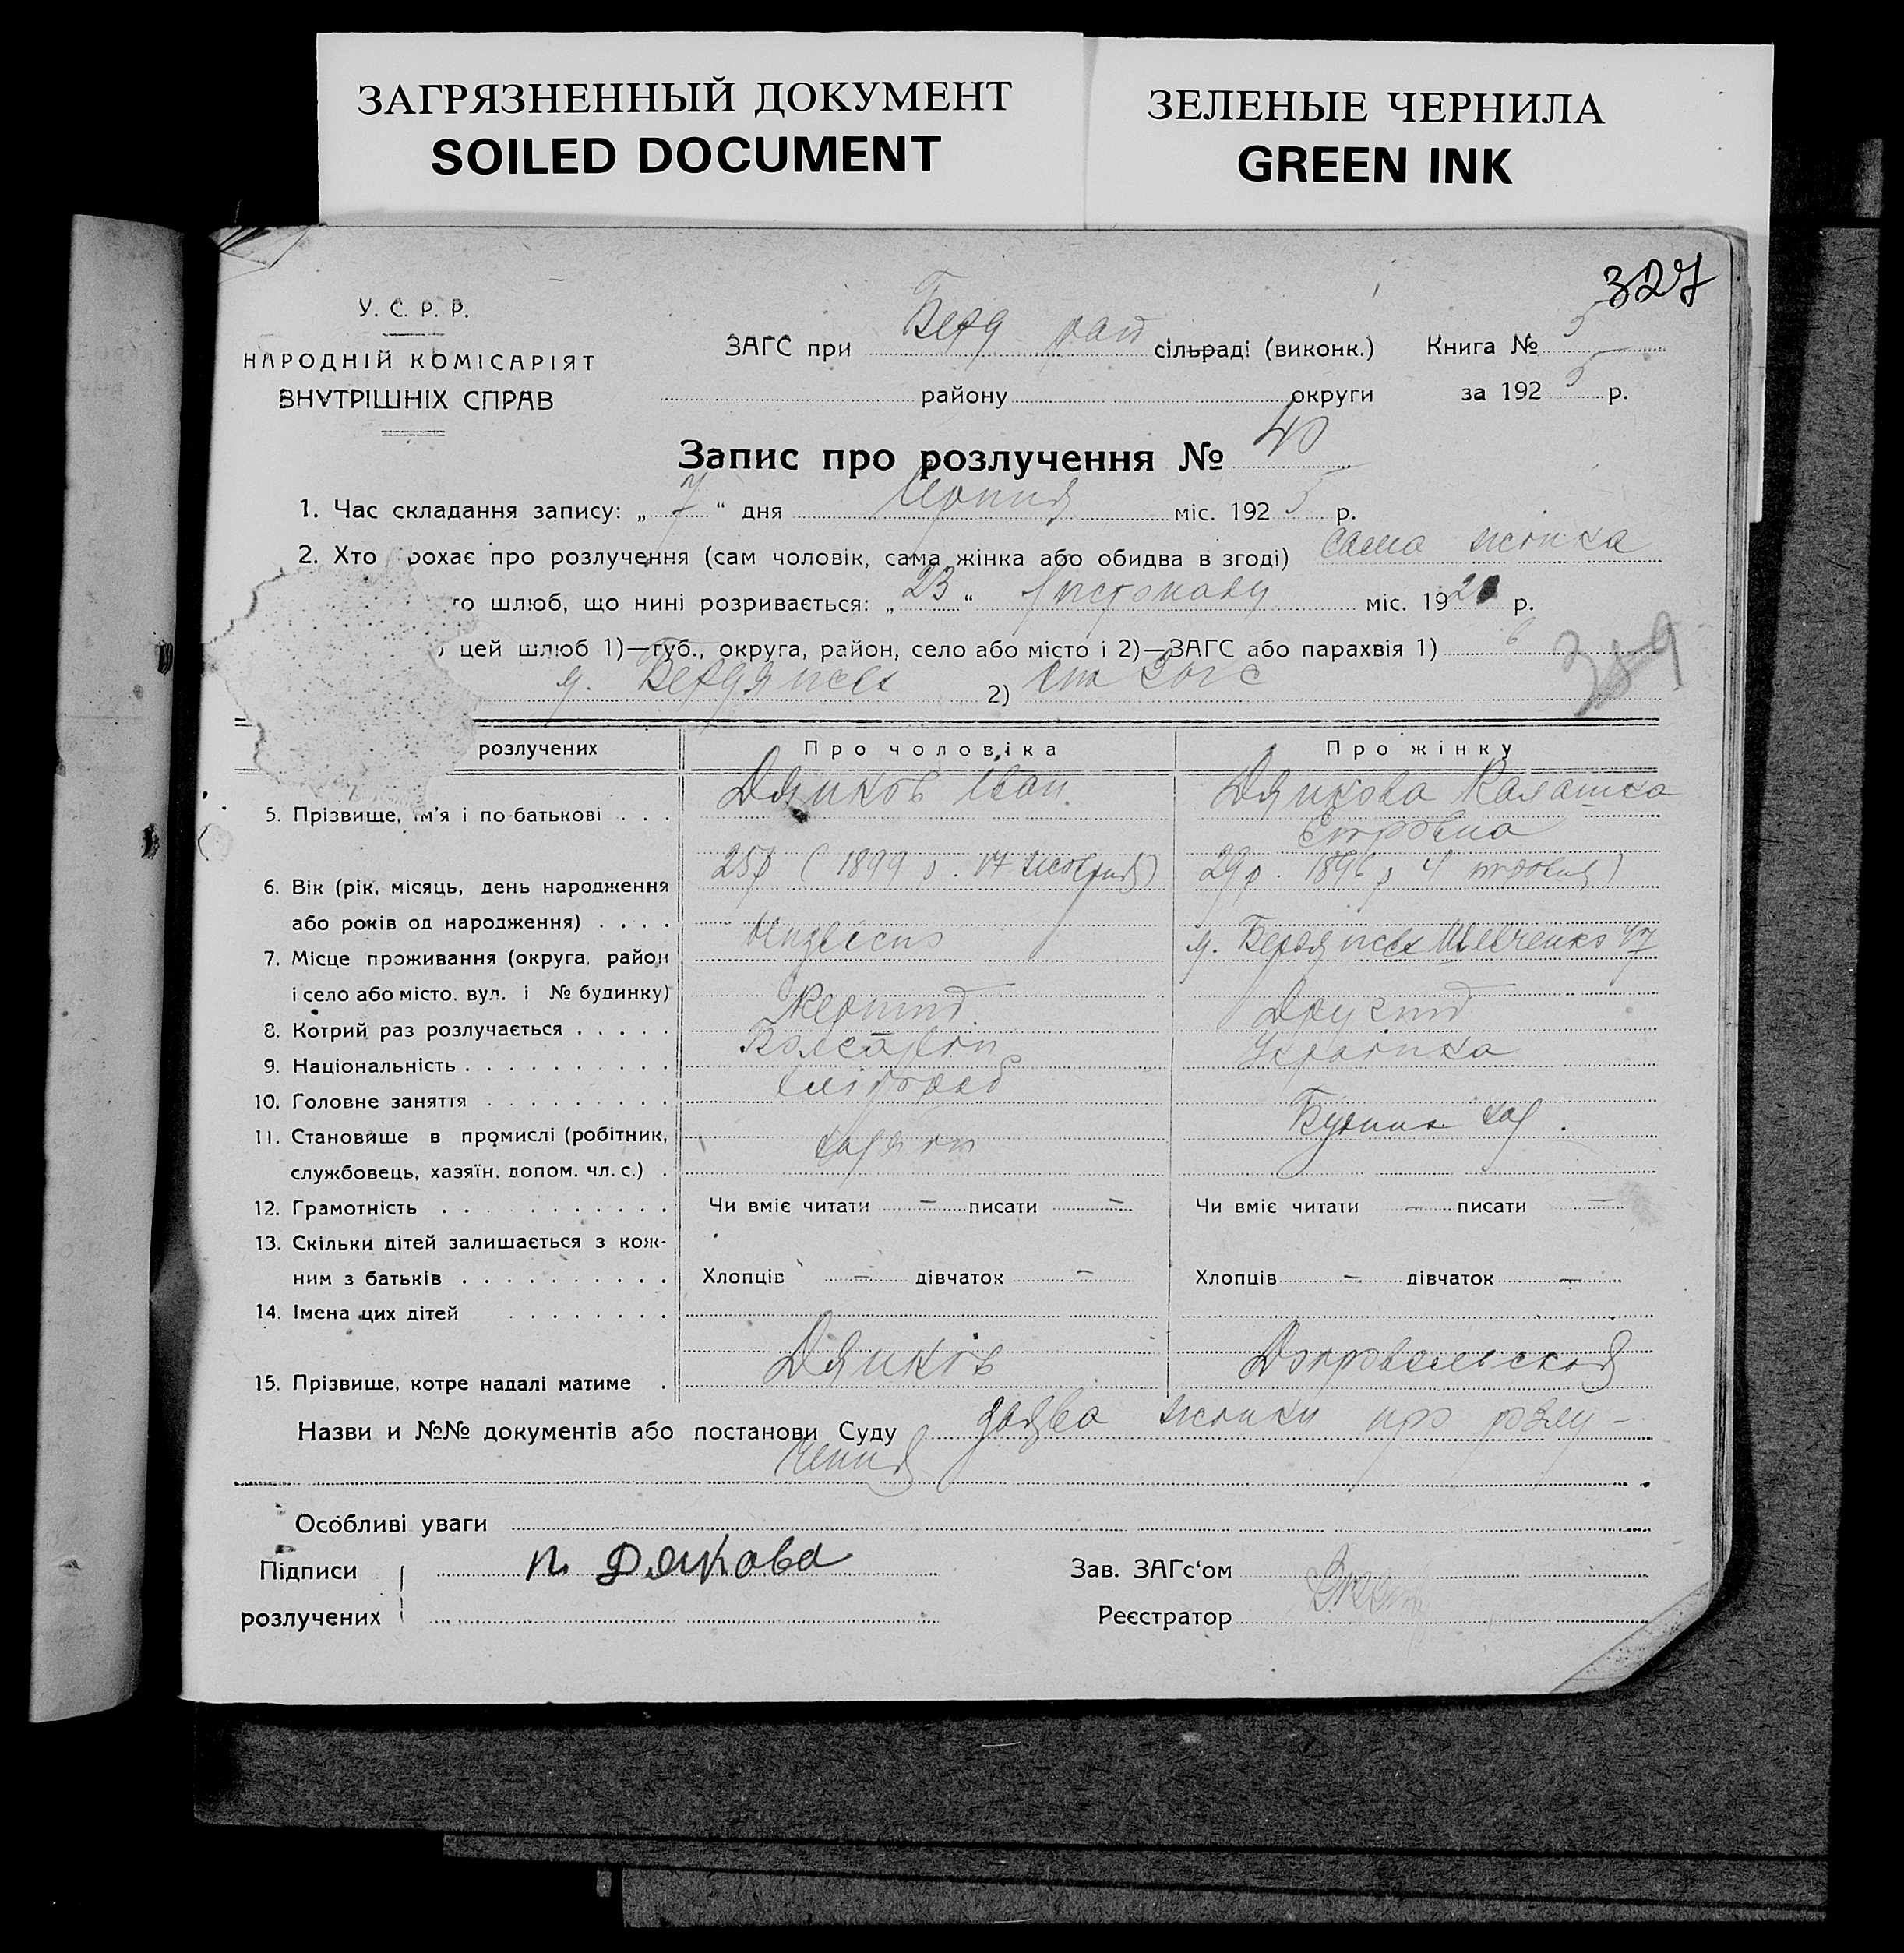 ЗАГРЯЗНЕННЫЙ ДОКУМЕНТ
SOILED DOCUMENT
ЗЕЛЕНЫЕ ЧЕРНИЛА
GREEN INK
327
У. С. Р. Р.
НАРОДНІЙ КОМІСАРІЯТ
ВНУТРІШНІХ СПРАВ
ЗАГС при Берд рай сільраді (виконк.) Книга № 5
району округи за 1925 р.
Запис про розлучення № 40
1. Час складання запису: „ 7 “ дня міс. 1925 р.
2. Хто рохає про розлучення (сам чоловік, сама жінка або обидва в згоді) сама жінка
го шлюб, що нині розривається: „ 23 “ Листопаду міс. 192 р.
цей шлюб 1)—губ., округа, район, село або місто і 2)—ЗАГС або парахвія 1) в
389
м. Бердянськ 2)
розлучених Про чоловіка Про жінку
5. Прізвище, ім'я і по-батькові . . . Дяяков Іван Дякова
25р (1899 р. 17 жовтня) 29р. 1896 р 4
6. Вік (рік, місяць, день народження
або років од народження) . . . .
7. Місце проживання (округа, район невідомо м. Бердянськ Шевченко 47
і село або місто, вул. і № будинку)
8. Котрий раз розлучається . . . . . Перший Другий
9. Національність . . . . . . . . . . Українка
10. Головне заняття . . . . . . . . . хлібороб
11. Становище в промислі (робітник, хазяїн
службовець, хазяїн, допом. чл. с.) .
12. Грамотність . . . . . . . . . . . Чи вміє читати — писати — Чи вміє читати — писати —
13. Скільки дітей залишається з кож-
ним з батьків . . . . . . . . . . Хлопців — дівчаток — Хлопців — дівчаток —
14. Імена цих дітей . . . . . . . .
15. Прізвище, котре надалі матиме . Дяков Добровольская
Назви и №№ документів або постанови Суду заява жінки про розлу-
чення
Особливі уваги
Підписи п. Дякова Зав. ЗАГс'ом
розлучених Реєстратор